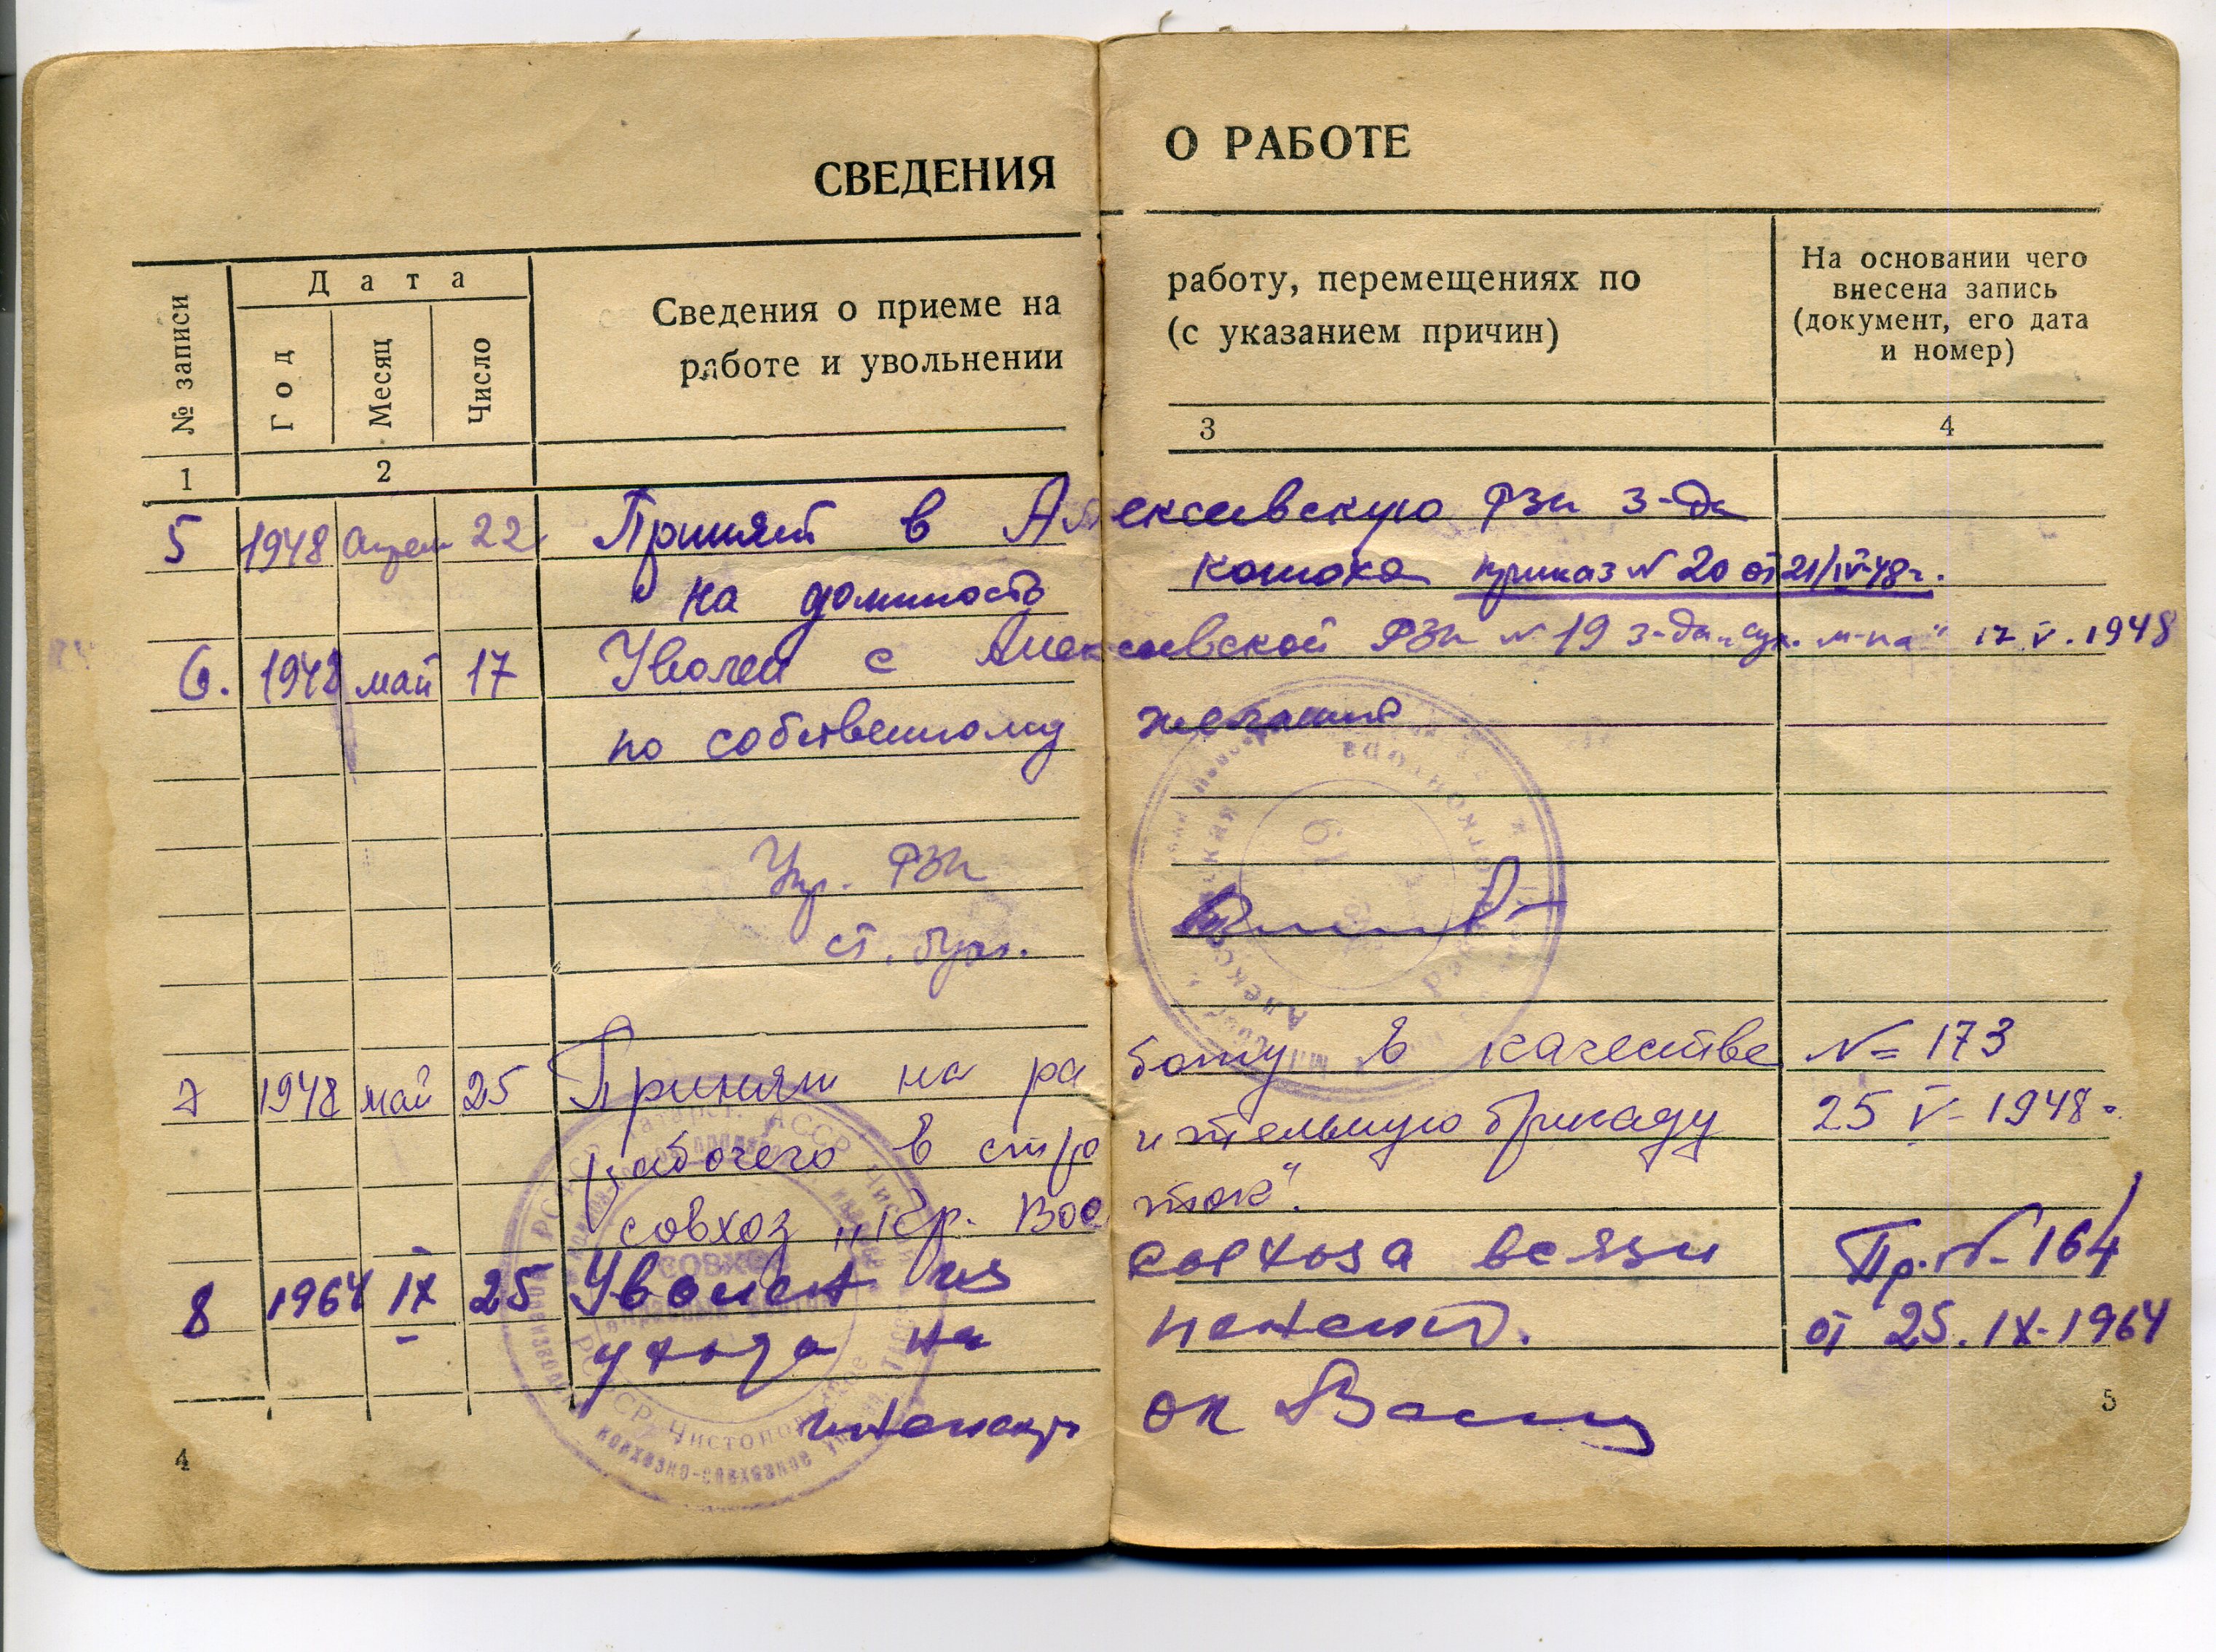 СВЕДЕНИЯ О РАБОТЕ
№ записи
Дата
Год
Месяц
Число
Сведения о приеме на работу, перемещениях по
работе и увольнении (с указанием причин)
На основании чего
внесена запись
(документ, его дата
и номер)
1 2 3 4
5 1948 апрель 22 Принят в Алексеевскую РЗК з-да
на должность приказ № 20 от 21/IV-48г.
6. 1948 май 17 Уволен с Алексеевской № 19 з-да 17.V.1948
по собственному желанию
Упр.
ст. бух.
7 1948 май 25 Принят на работу в качестве № 173
рабочего в строительную бригаду 25 V-1948г.
совхоз „Кр. Восток".
8 1964 IX 25 Уволен из совхоза в связи Пр. № 164
ухода на пенсию. от 25.IX-1964
инспектор ОК
4
5